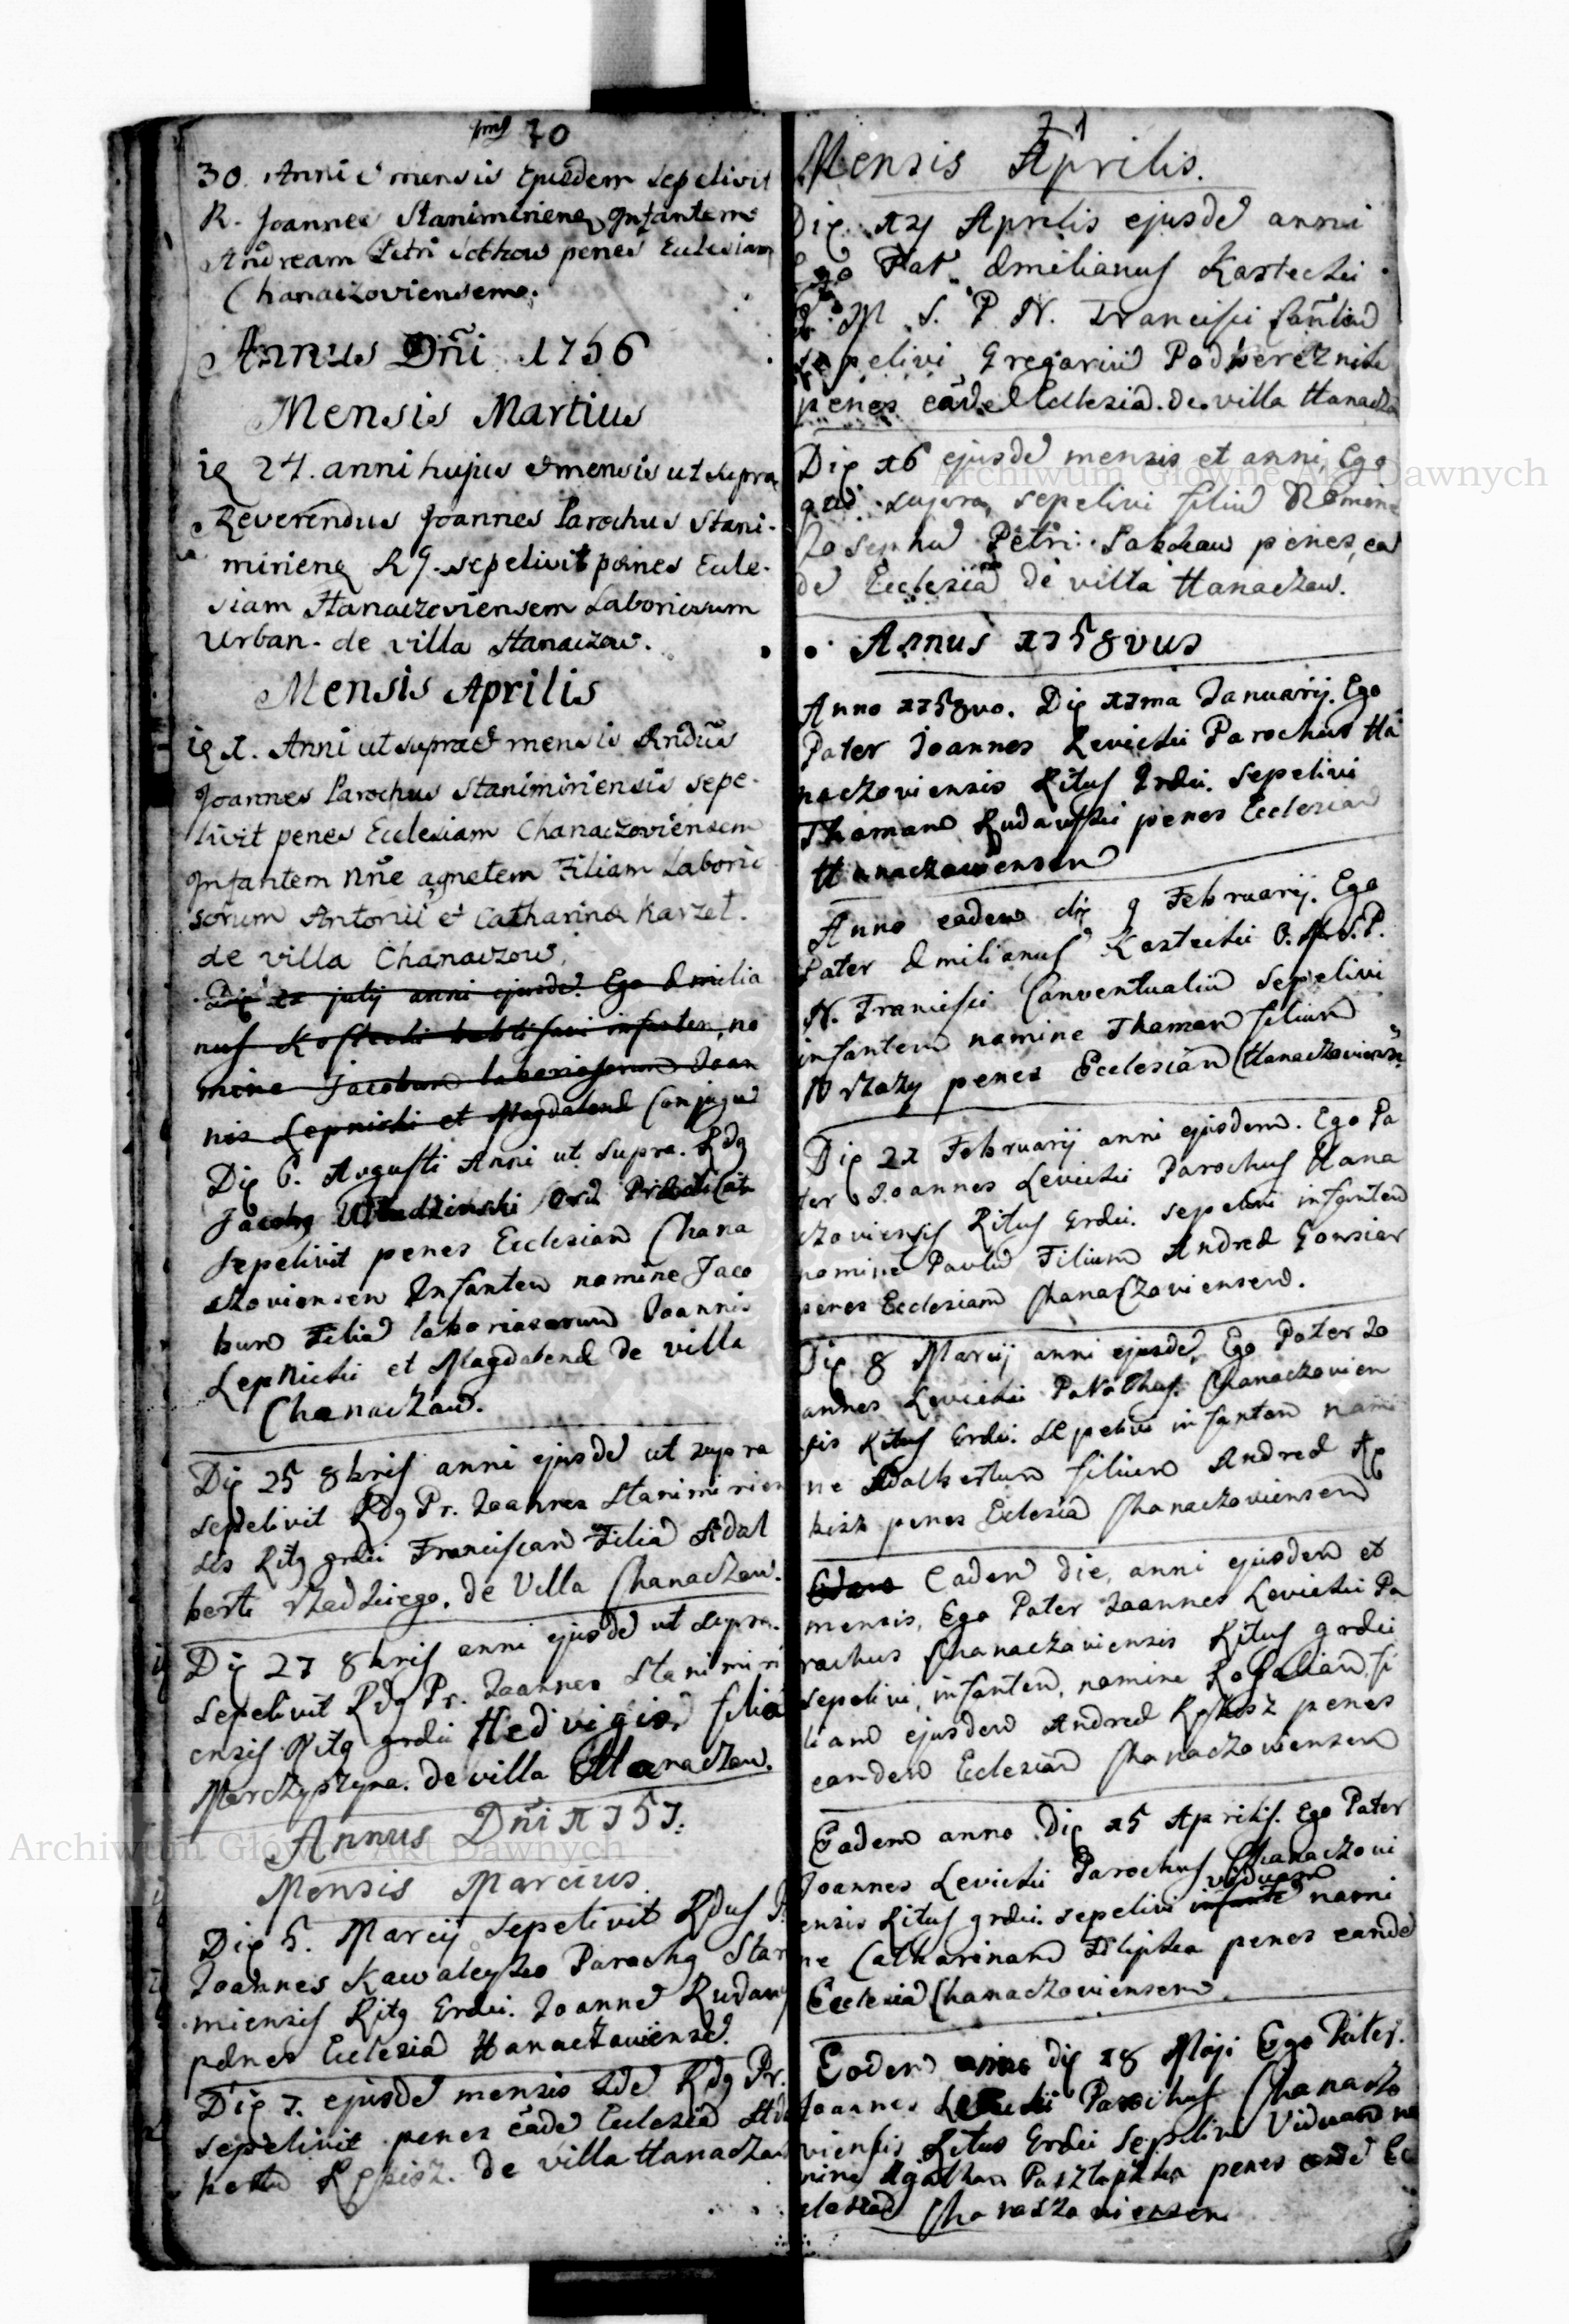 70
30. Anni e mensis Ejusdem sepelivit
R. Joannes Stanimiriens Infantem
Andream Petri penes Ecclesiam
Chanaczoviensem.
Annus Dñi 1756
Mensis Martius
24. anni hujus e mensis ut supra
Reverendus Joannes Parochus Stani-
miriens RG. sepelivit penes Eccle-
siam Hanaczoviensem Laboriosum
Urban. de villa Hanaczow.
Mensis Aprilis
1. Anni ut supra e mensis Rndūs
Joannes Parochus Stanimiriensis sepe-
livit penes Ecclesiam Chanaczoviensem
Infantem nñe agnetem Filiam Laborio
sorum Antonii et Catharina Karzet.
de villa Chanaczow.
Die 10 julij anni ejusdē. Ego Emilia
nus Kostecki babtisavi infantem, no
mine Jacobum laboriosorum Joan
nis Lepnicki et Magdalenæ Conjugū
Die 6. Augusti Anni ut supra. Rdg
Jacobg Ord
sepelivit penes Ecclesiam Chana
czoviensem Infantem nomine Jaco
bum Filiū laboriosorum Joannis
Lepnicki et Magdalenæ de villa
Chanaczow.
Die 25 8bris anni ejusdē ut supra
sepelivit Rdg Pr. Joannes Stanimirien
sis Ritg grdci Franciscam Filiā Adal
berti de Villa Chanaczow.
Die 27 8bris anni ejusdē ut supra.
sepelivit Rdg Pr. Joannes Stanimiri
ensis Ritg grdci Hedvigim filiā
Marczyszyna. de villa Hanaczow.
Annus Dñi 1757.
Mensis Marcius.
Die 5. Marcij sepelivit Rdus P.
Joannes Kawalczko Parochg Stani
miensis Ritg Grdci. Joannē
penes Ecclesiā Hanaczowiensē.
Die 7. ejusdē mensis Idē Rdg Pr.
sepelivit penes eādē Ecclesiā
de villa Hanaczow
71
Mensis Aprilis.
Die 14 Aprilis ejusdē anni
Ego Pat. Emilianus Kostecki
O. M. S. P. N. Francisci Conventū
sepelivi Gregoriū Podbereznik
penes eādē Ecclesiā. de villa Hanaczow
Die 16 ejusdē mensis et anni, Ego
qui supra, sepelivi filiū Nomine
Josephū Petri penes ean
dē Ecclesiā de villa Hanaczow.
Annus 1758vus
Anno 1758vo. Die 11ma Januarij. Ego
Pater Joannes Levicki Parochus Ha
naczoviensis Ritus Grdci. Sepelivi
Thomam Rudawski penes Ecclesiam
Hanaczowiensem
Anno eodem die 9 Februarij. Ego
Pater Emilianus Kostecki O. M. S. P.
N. Francisci Conventualiū Sepelivi
infantem nomine Thomam filium
penes Ecclesiam Hanaczoviensē.
Die 21 Februarij anni ejusdem. Ego Pa
ter Joannes Levicki Parochus Hana
czoviensis Ritus Grdci. sepelivi infantem
nomine Paulū Filium Andreæ Gonsior
penes Ecclesiam Chanaczoviensem.
Die 8 Marcij anni ejusdē, Ego Pater Jo
annes Levicki Parochus Chanaczovien
sis Ritus Grdci. sepelivi infantem nomi
ne Adalbertum filium Andreæ Rę
bisz penes Eclesiā Chanaczoviensem
Eadem die, anni ejusdem et
mensis, Ego Pater Joannes Levicki Pa
rochus Chanaczoviensis Ritus grdci
sepelivi, infantem, nomine Rosaliam fi
liam ejusdem Andreæ penes
eandem Eclesiam Chanaczowiensem
Eadem anno Die 15 Aprilis. Ego Pater
Joannes Levicki Parochus Chanaczovi
viduam
ensis Ritus grdci. sepelivi infantē nomi
ne Catharinam penes eandē
Ecclesiā Chanaczoviensem.
Eodem anno die 18 Maji Ego Pater.
Joannes Levicki Parochus Chanaczo
viensis Ritus Grdci Sepelivi Viduam no
mine Agatham penes eandē Ec
clesiā Chanaczoviensem
Archiwum Główne Akt Dawnych
Archiwum Główne Akt Dawnych